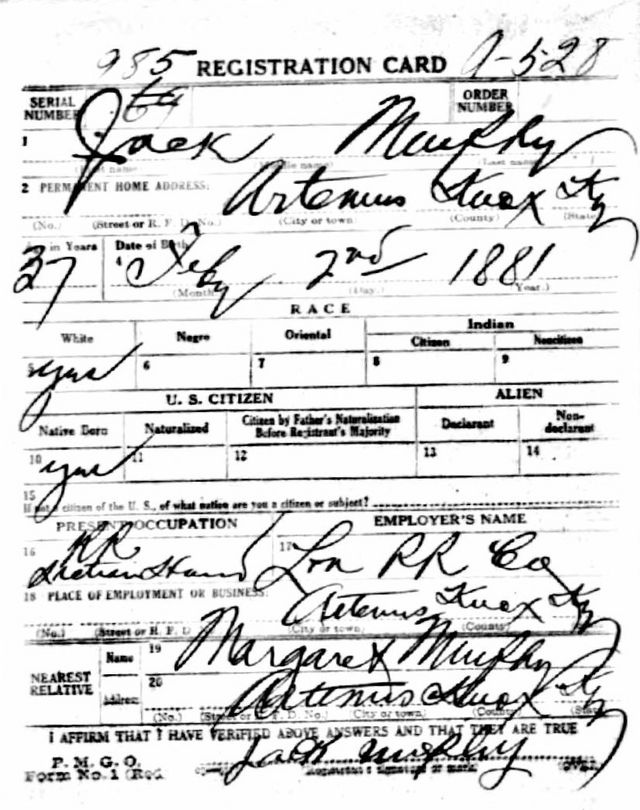 985 REGISTRATION CARD A-528
SERIAL NUMBER ORDER NUMBER
1 Jack Murphy
(First name) (Middle name) (Last name)
2 PERMANENT HOME ADDRESS: Artemus Knox Ky
(No.) (Street or R. F. D. No.) (City or town) (County) (State)
Age in Years Date of Birth
37 4 Feby 2nd 1881
(Month) (Day.) (Year.)
RACE
White Negro Oriental Indian
Citizen Noncitizen
5 yes 6 7 8 9
U. S. CITIZEN ALIEN
Native Born Naturalized Citizen by Father's Naturalization Before Registrant's Majority Declarant Non-declarant
10 yes 11 12 13 14
15
If not a citizen of the U. S., of what nation are you a citizen or subject?
PRESENT OCCUPATION EMPLOYER'S NAME
16 RR Section Hand 17 RR Co
18 PLACE OF EMPLOYMENT OR BUSINESS:
Artemus Knox Ky
(No.) (Street or R. F. D. (City or town) (County)
NEAREST RELATIVE Name 19 Margaret Murphy
Address 20 Artemus Knox Ky
(No.) (Street or R. F. D. No.) (City or town) (County) (State)
I AFFIRM THAT I HAVE VERIFIED ABOVE ANSWERS AND THAT THEY ARE TRUE
P. M. G. O.
Form No. 1 (Red Jack Murphy
(Registrant's signature or mark) (OVER)